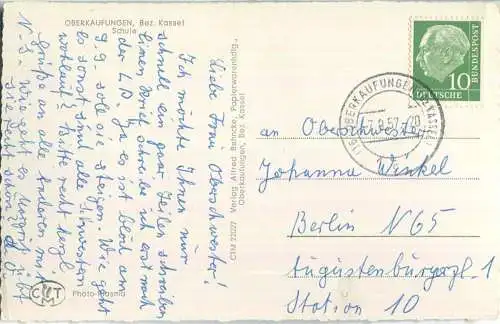 OBERKAUFUNGEN, Bez. Kassel
Schule
Liebe Frau Oberschwester!
Ich möchte Ihnen nur
schnell ein paar Zeilen schreiben
einen Brief schreibe ich erst nach
der L.D. Ja es ist blöd am
9.9. soll sie steigen. Wie geht
es sonst? Sind alle
wohlauf? Bitte recht herzl.
Grüße an alle Anderen mit
N.S. Wie geht es Margrit
CTM 22027 Verlag Alfred Behncke, Papierwarenhdlg.,
Oberkaufungen, Bez. Kassel
C M T
Photo-Kosmid
DEUTSCHE BUNDESPOST
10
(16) OBERKAUFUNGEN (BZ KASSEL)
7.9.57.-20
an Oberschwester
Johanna Winkel
Berlin N 65
Augustenburgpl. 1
Station 10